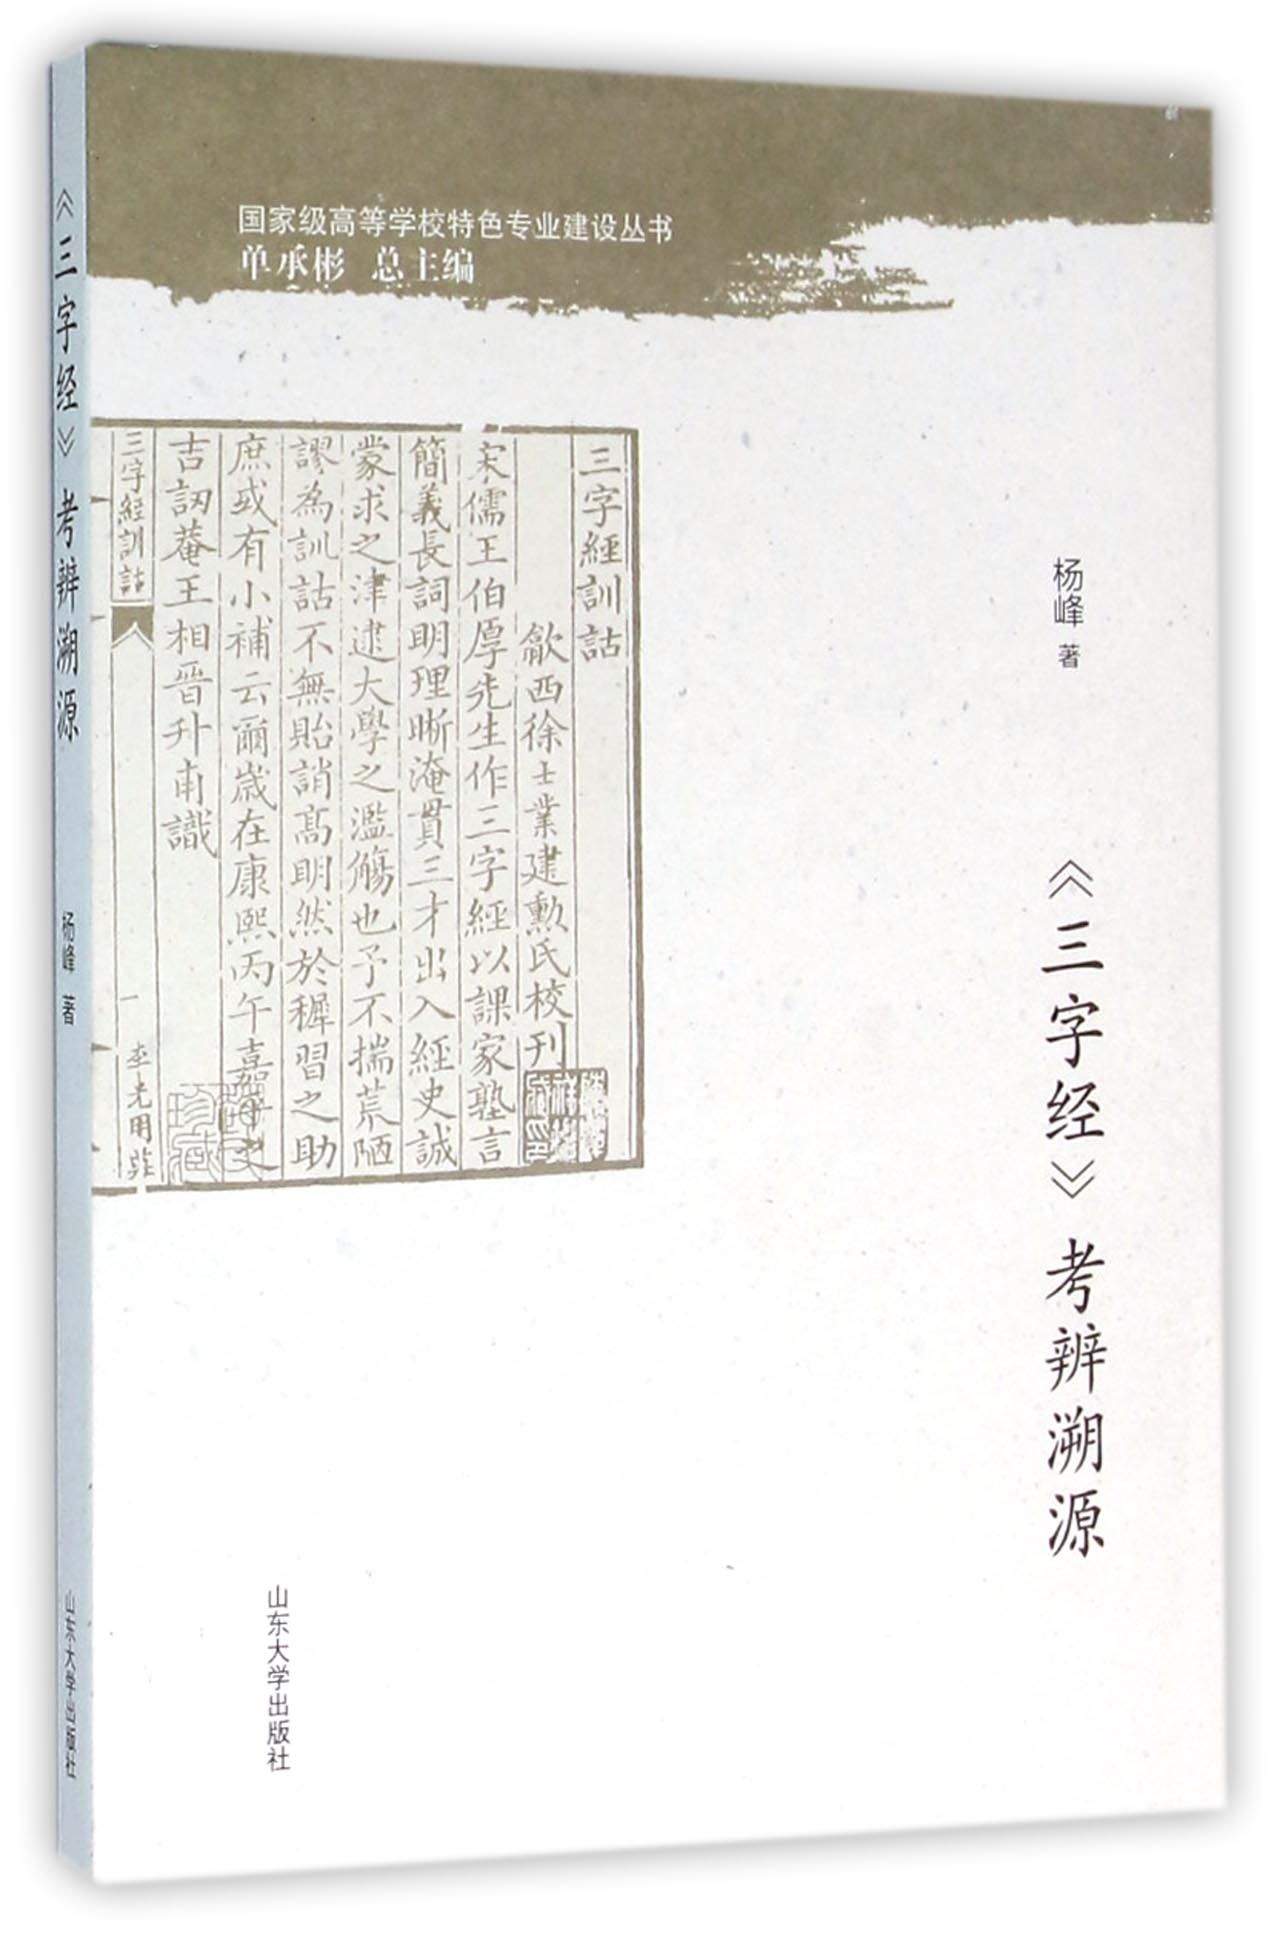 国家级高等学校特色专业建设丛书
单承彬 总主编
杨峰 著
《三字经》考辨溯源
三字經訓詁
歙西徐士業建勳氏校刊
宋儒王伯厚先生作三字經以課家塾言
簡義長詞明理晰淹貫三才出入經史誠
蒙求之津逮大學之濫觴也予不揣荒陋
謬為訓詁不無貽誚高明然於穉習之助
庶或有小補云爾歲在康熙丙午嘉平之
吉訒菴王相晉升甫識
三字經訓詁
一
山东大学出版社
《三字经》考辨溯源
杨峰 著
山东大学出版社